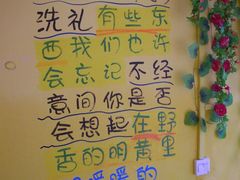 洗礼有些东
西我们也许
会忘记不经
意间你是否
会想起在野
香的明黄里
暖暖的